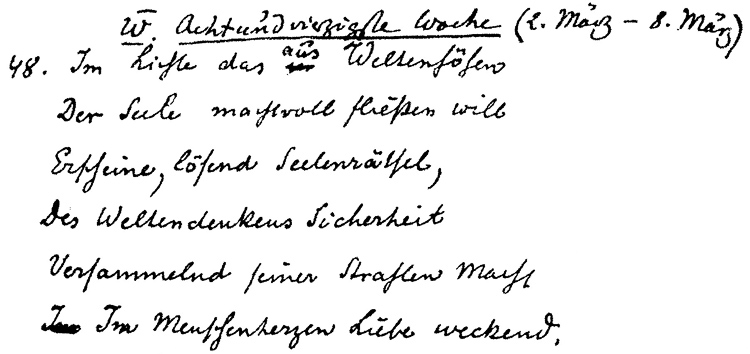 W. Achtundvierzigste Woche (2. März – 8. März)
48. Im Lichte das aus Weltenhöhen
Der Seele machtvoll fließen will
Erscheine, lösend Seelenrätsel,
Des Weltendenkens Sicherheit
Versammelnd seiner Strahlen Macht
Im Im Menschenherzen Liebe weckend.